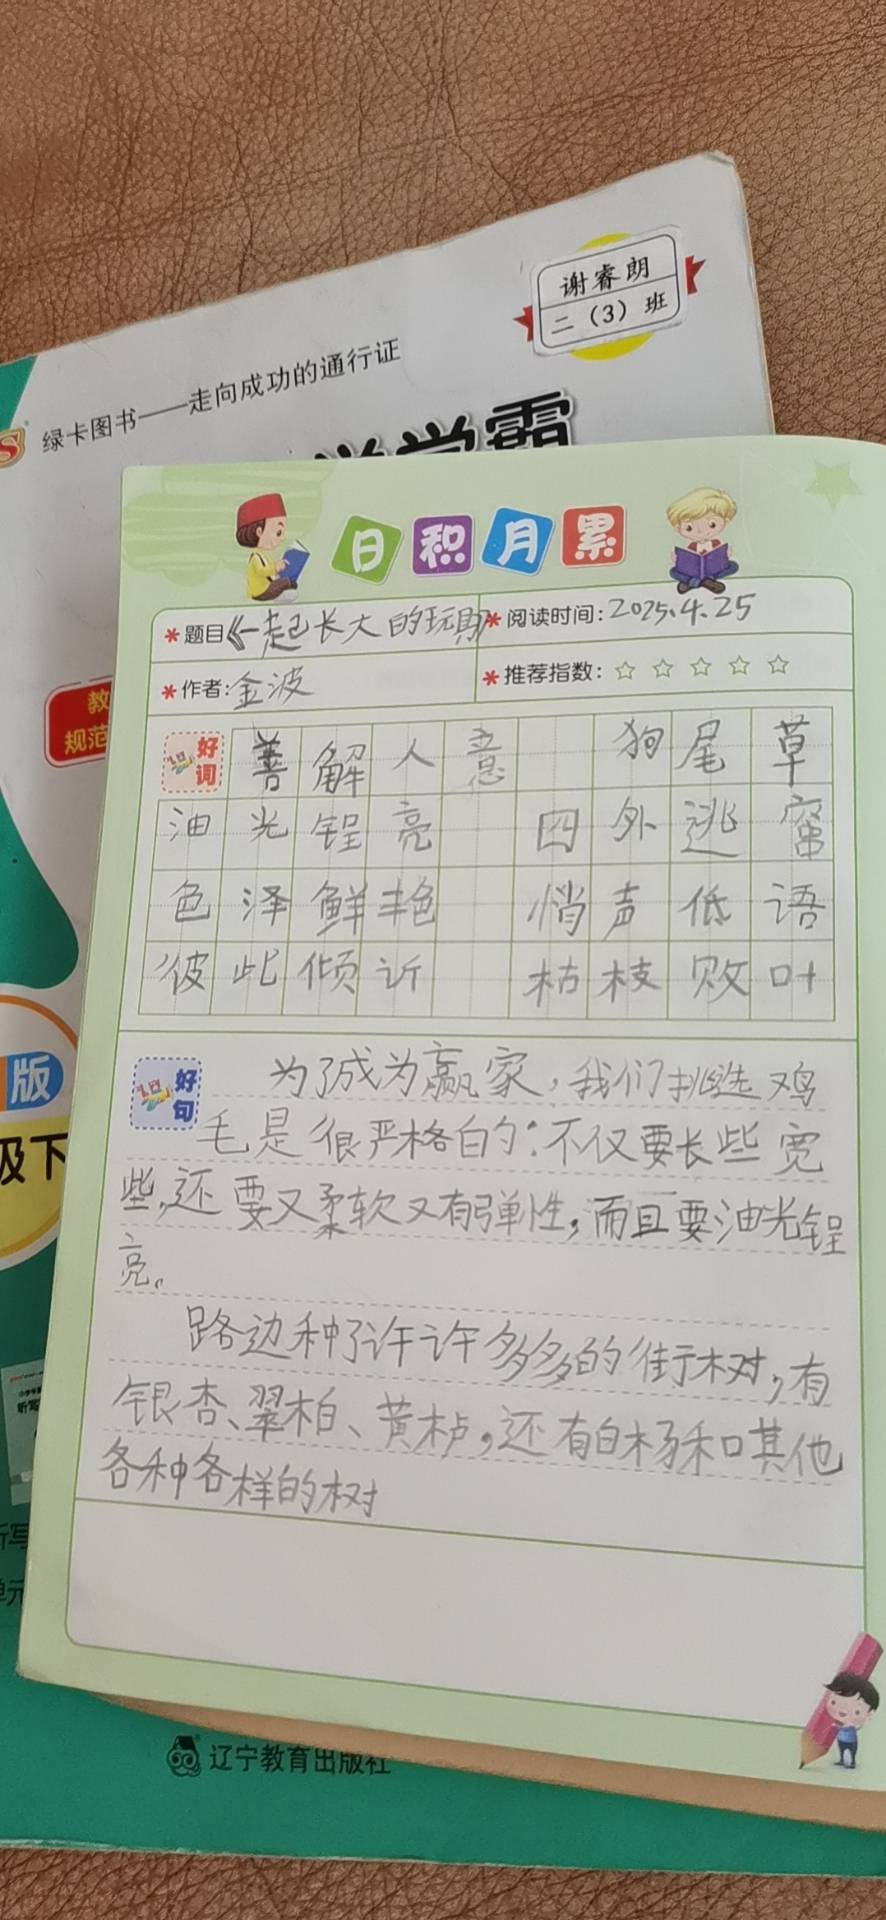 谢睿朗
二（3）班
绿卡图书——走向成功的通行证
学霸
日积月累
*题目《一起长大的玩具 *阅读时间:2025.4.25
*作者:金波 *推荐指数:☆☆☆☆☆
教
规范
好词 善解人意 狗尾草
油光锃亮 四外逃窜
色泽鲜艳 悄声低语
彼此倾诉 枯枝败叶
版
级下
好句 为了成为赢家，我们挑选鸡
毛是很严格的：不仅要长些宽
些，还要又柔软又有弹性，而且要油光锃
亮。
路边种了许许多多的街树，有
银杏、翠柏、黄栌，还有白杨和其他
各种各样的树
听写
单元
辽宁教育出版社